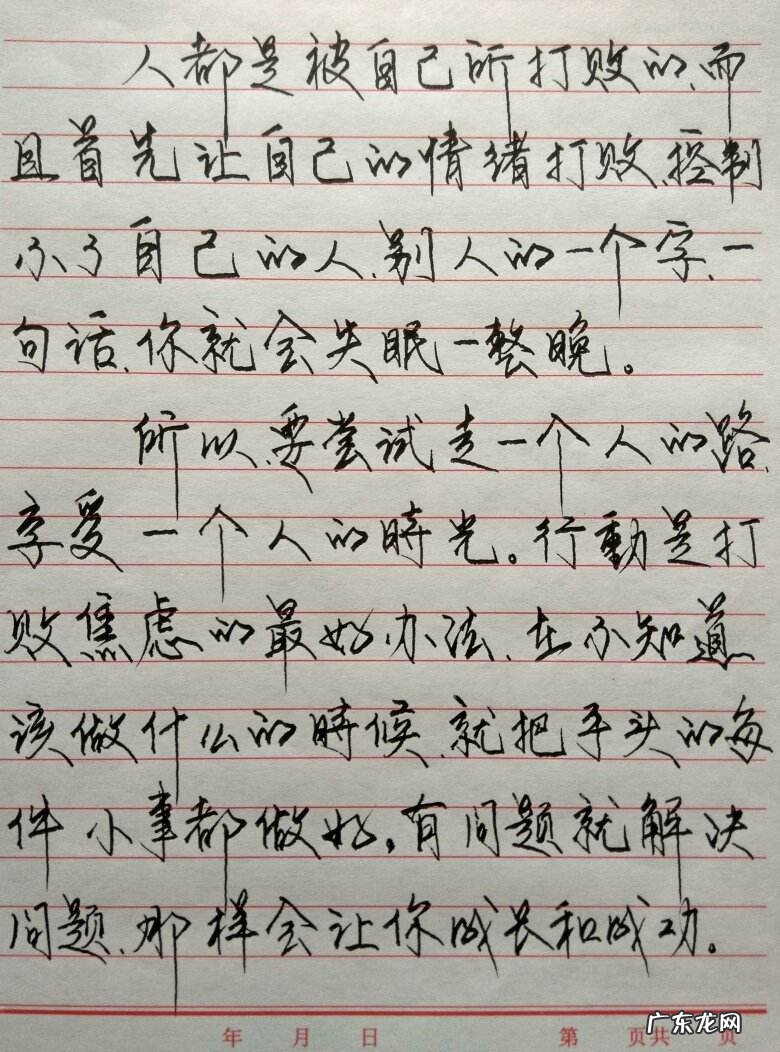 人都是被自己所打败的、而
且首先让自己的情绪打败、控制
不了自己的人、别人的一个字、一
句话、你就会失眠一整晚。
所以、要尝试走一个人的路、
享受一个人的時光。行動是打
败焦虑的最好办法、在不知道
该做什么的時候、就把手头的每
件小事都做好。有问题就解决
问题、那样会让你成长和成功。
年 月 日 第 页共 页
广东龙网